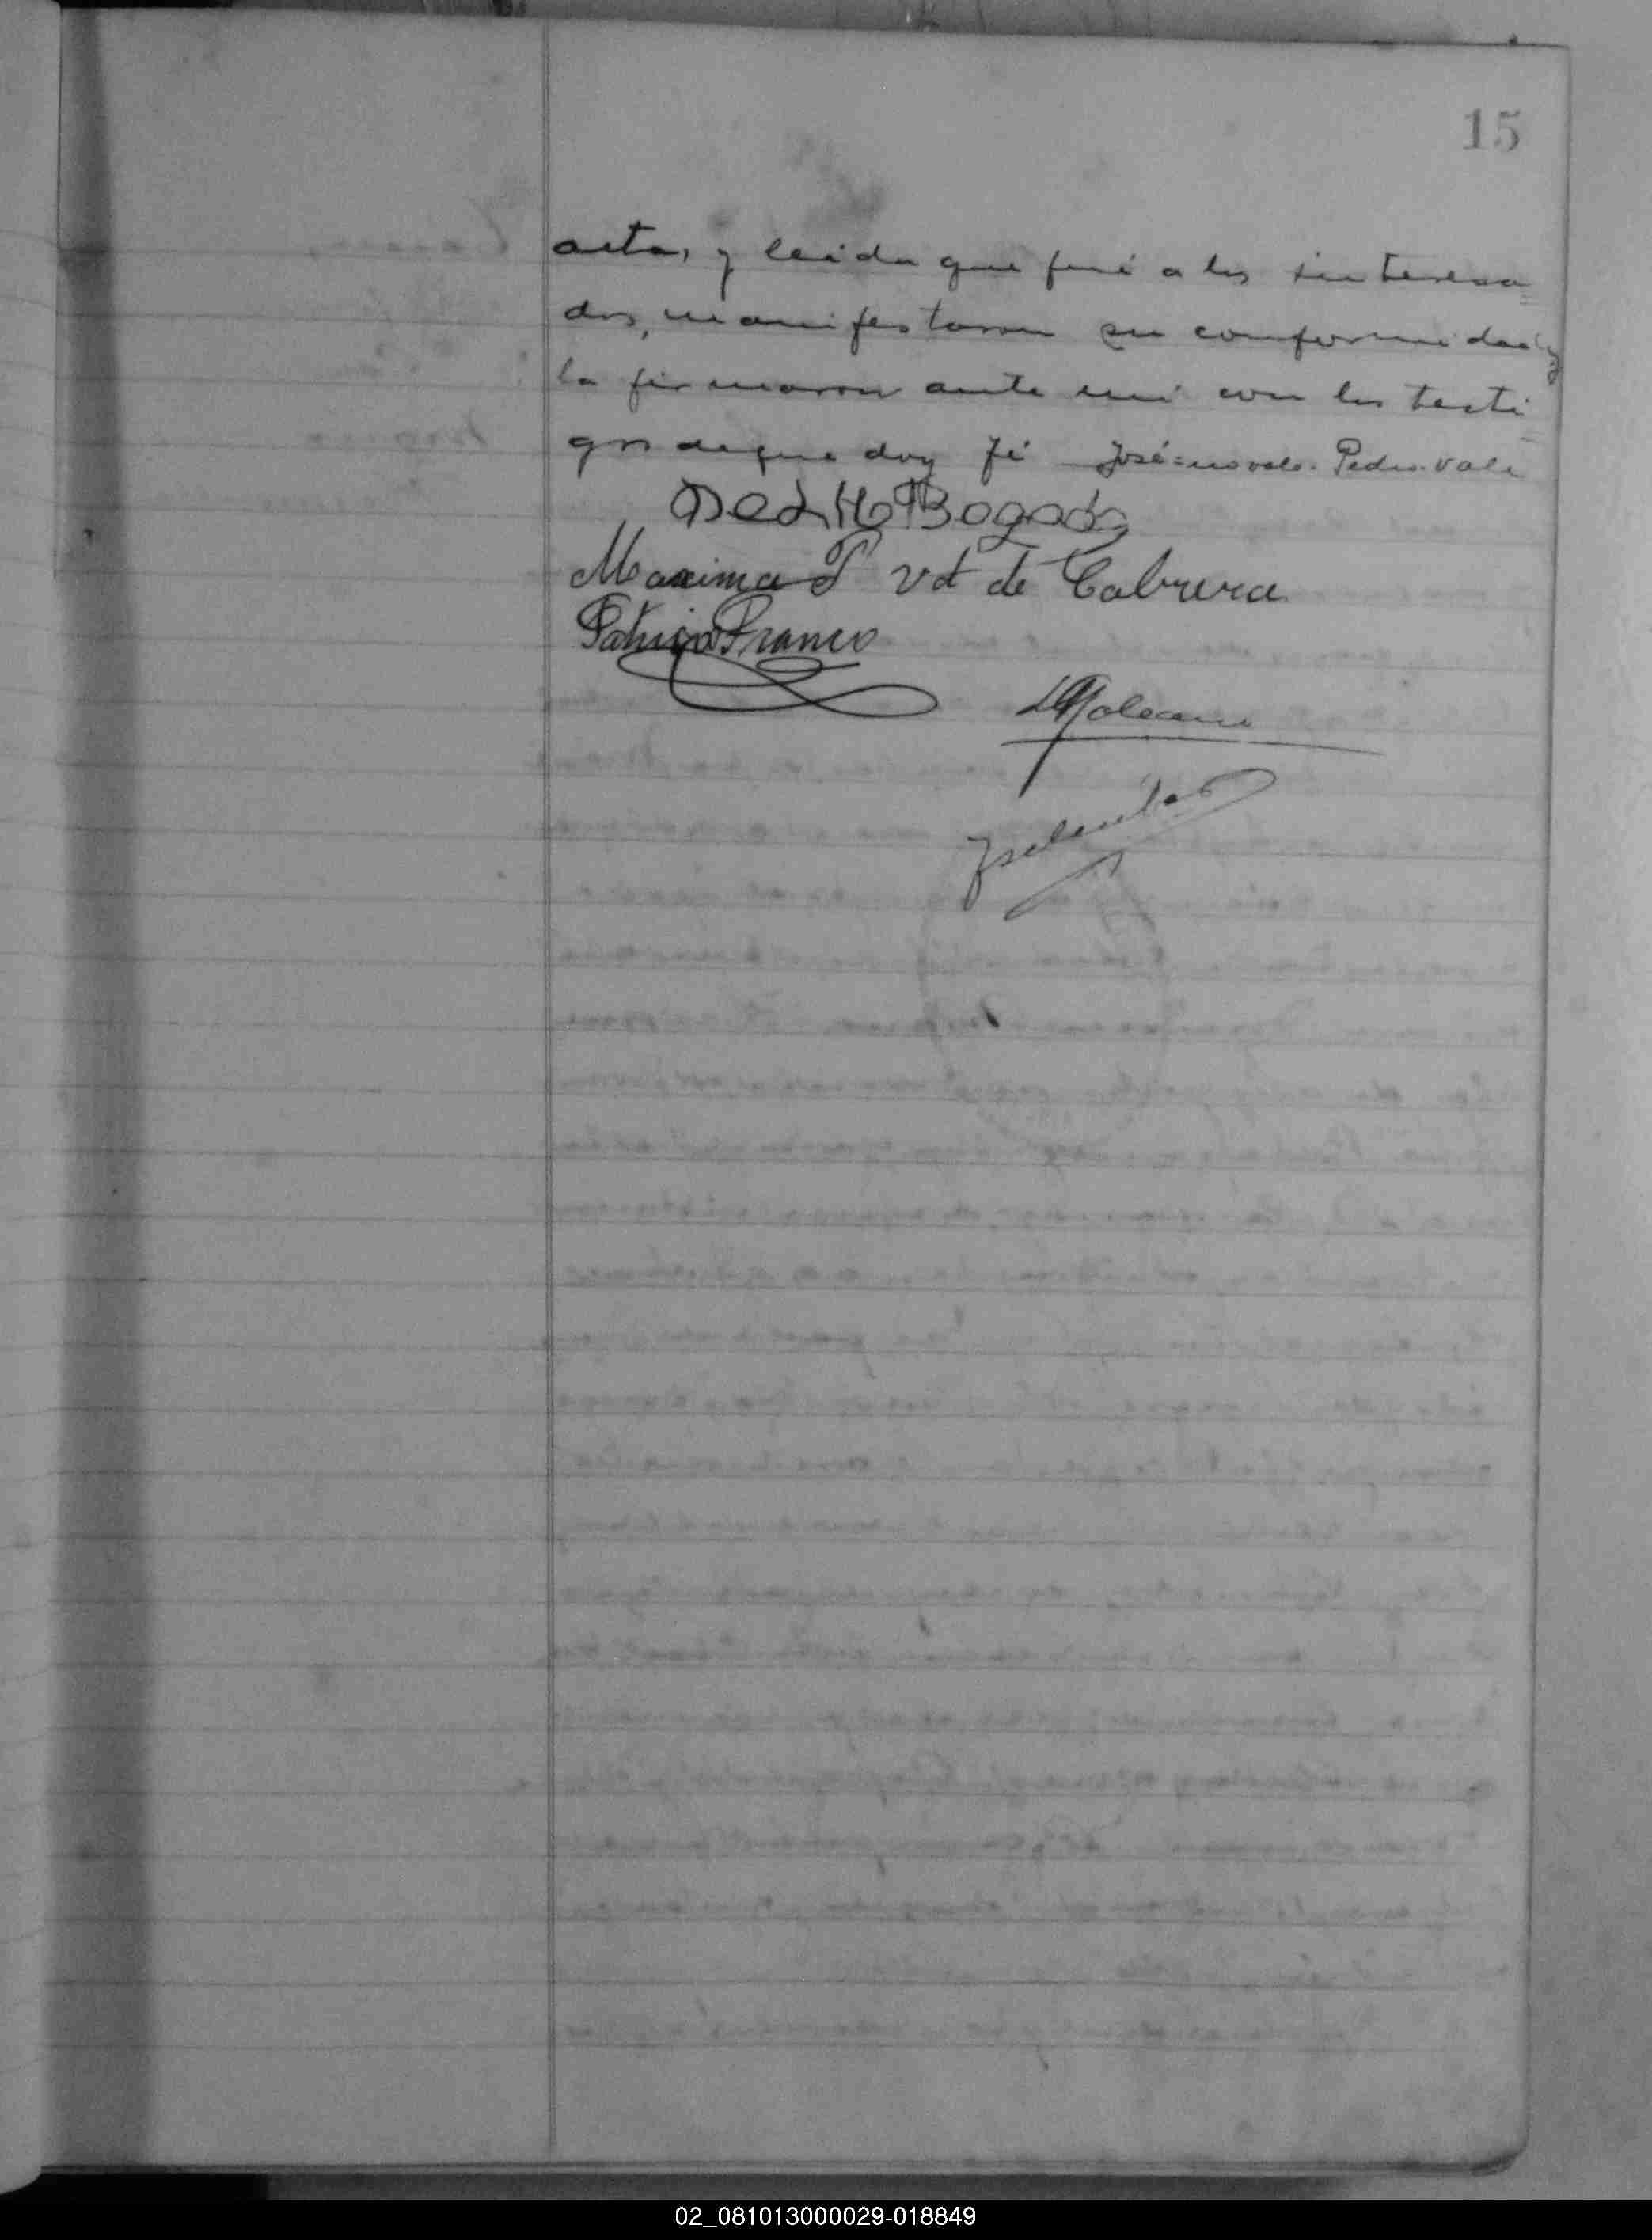 15
acta, y leida que fué a los interesa=
dos, manifestaron su conformidad y
la firmaron ante mi con los testi=
gos de que doy fé José=no vale. Pedro vale
Pedro Bogado
Maxima F vd de Cabrera
Patricio Franco
Galeano
02_081013000029-018849